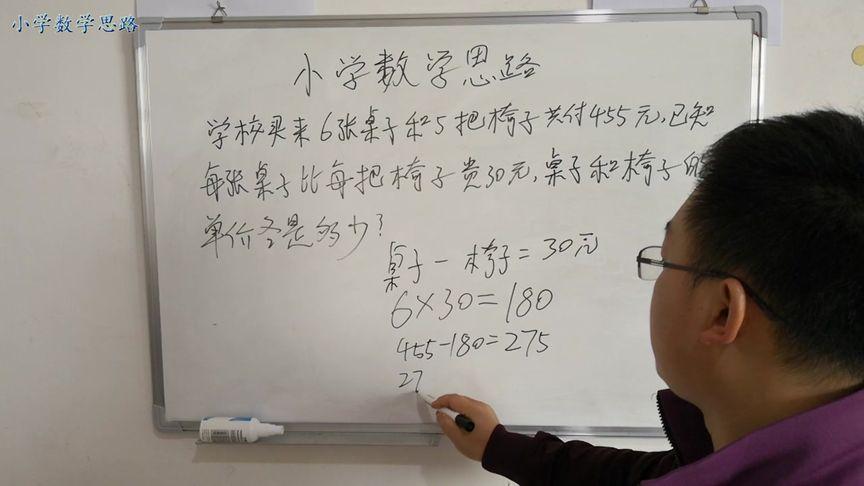 小学数学思路
小学数学思路
学校买来6张桌子和5把椅子共付455元,已知
每张桌子比每把椅子贵30元,桌子和椅子的
单价各是多少?
桌子-椅子=30元
6×30=180
455-180=275
27